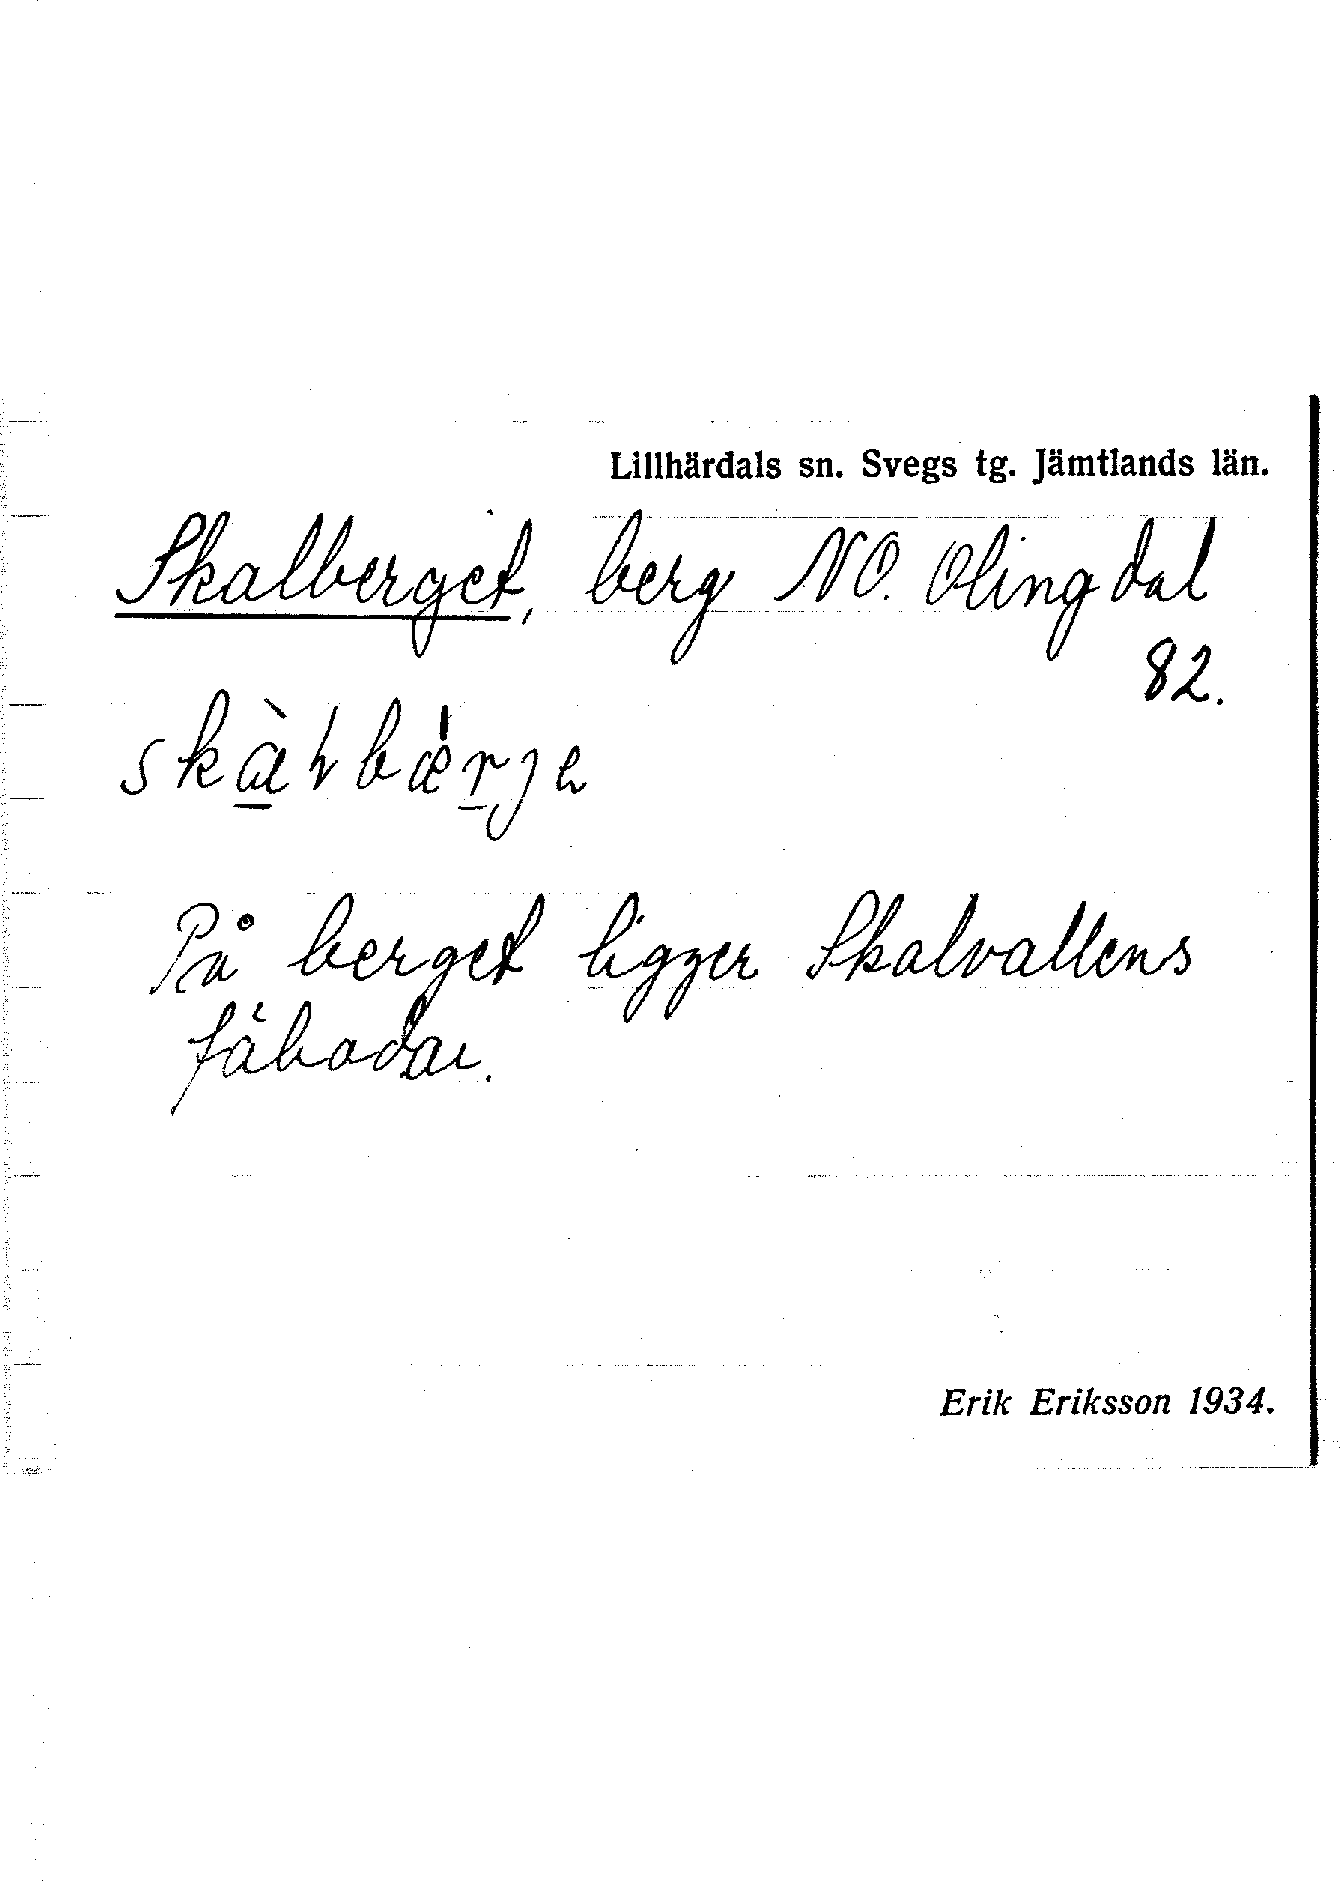 Lillhärdals sn. Svegs tg. Jämtlands län.
Skalberget, berg NO. Olingdal
82.
På berget ligger Skalvallens
fäbodar.
Erik Eriksson 1934.